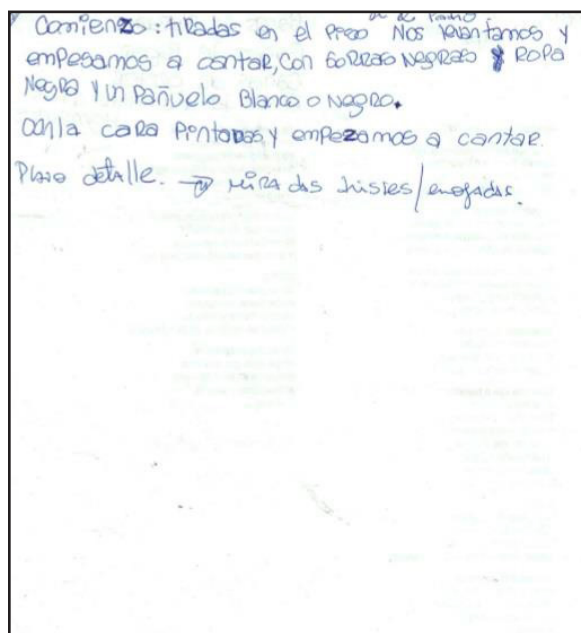 Comienzo: tiradas en el piso Nos levantamos y
empesamos a cantar, con gorras negras y Ropa
Negra y un Pañuelo Blanco o Negro.
con la cara Pintadas y empezamos a cantar.
Plano detalle. → miradas tristes/enojadas.